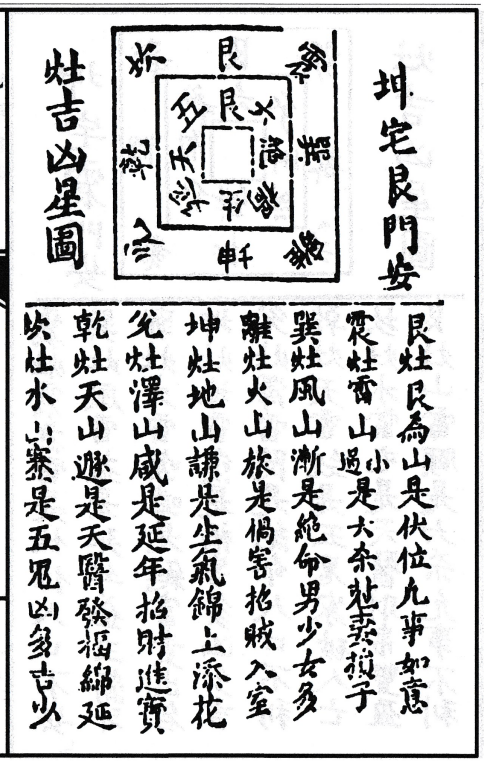 坤宅艮門安
灶吉凶星圖
坎 艮 震
乾 巽
兌 坤 離
五 艮 六
天 絕
延 生 禍
艮灶艮為山是伏位凡事如意
震灶雷山小過是六杀尅妻損子
巽灶風山漸是絕命男少女多
離灶火山旅是禍害招賊入室
坤灶地山謙是生氣錦上添花
兌灶澤山咸是延年招財進寶
乾灶天山遯是天醫發福綿延
坎灶水山蹇是五鬼凶多吉少